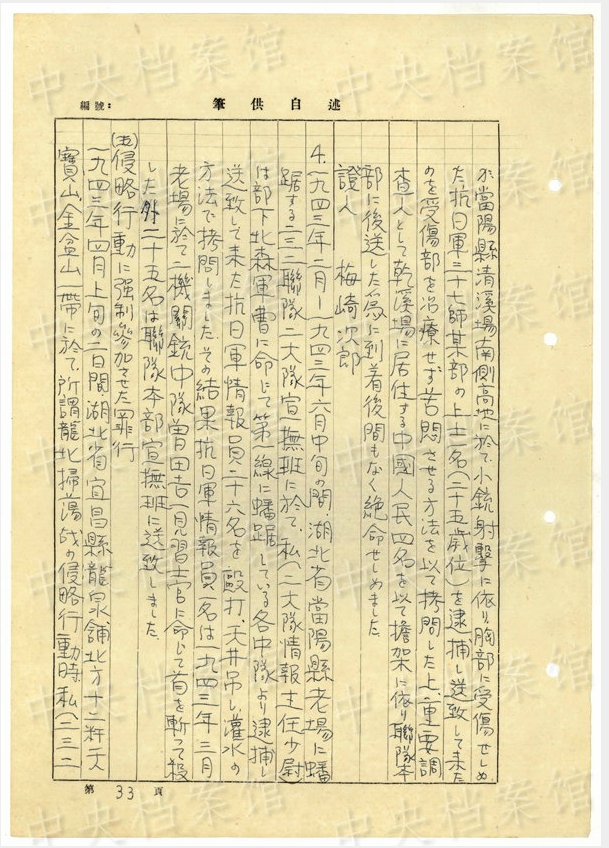 編號:
述自供筆
於當陽縣清溪場南側高地に於て小銃射撃に依り胸部に受傷せしめ
た抗日軍三十七師某部の上士一名(二十五歳位)を逮捕し送致して来た
のを受傷部を治療せず苦悶させる方法を以て拷問した上、重要調
査人として乾溪場に居住する中國人民四名を以て擔架に依り聯隊本
部に後送した為に到着後間もなく絶命せしめました
證人 梅崎次郎
4.一九四三年二月ー一九四三年六月中旬の間、湖北省當陽縣老場に蟠
踞する二三二聯隊二大隊宣撫班に於て、私(二大隊情報主任少尉)
は部下北森軍曹に命じて第一線に蟠踞している各中隊より逮捕し
送致して来た抗日軍情報員二十六名を毆打、天井吊し、灌水の
方法で拷問しました、その結果抗日軍情報員一名は一九四三年三月
老場に於て二機關銃中隊曽田吉一見習士官に命じて首を斬って殺
した外二十五名は聯隊本部宣撫班に送致しました
(五)侵略行動に强制参加させた罪行
一九四三年四月上旬の二日間湖北省宜昌縣龍泉舗北方十二粁天
寶山、金盆山一帶に於て、所謂龍北掃蕩战の侵略行動時、私(二三二
第 33 頁
中央档案馆